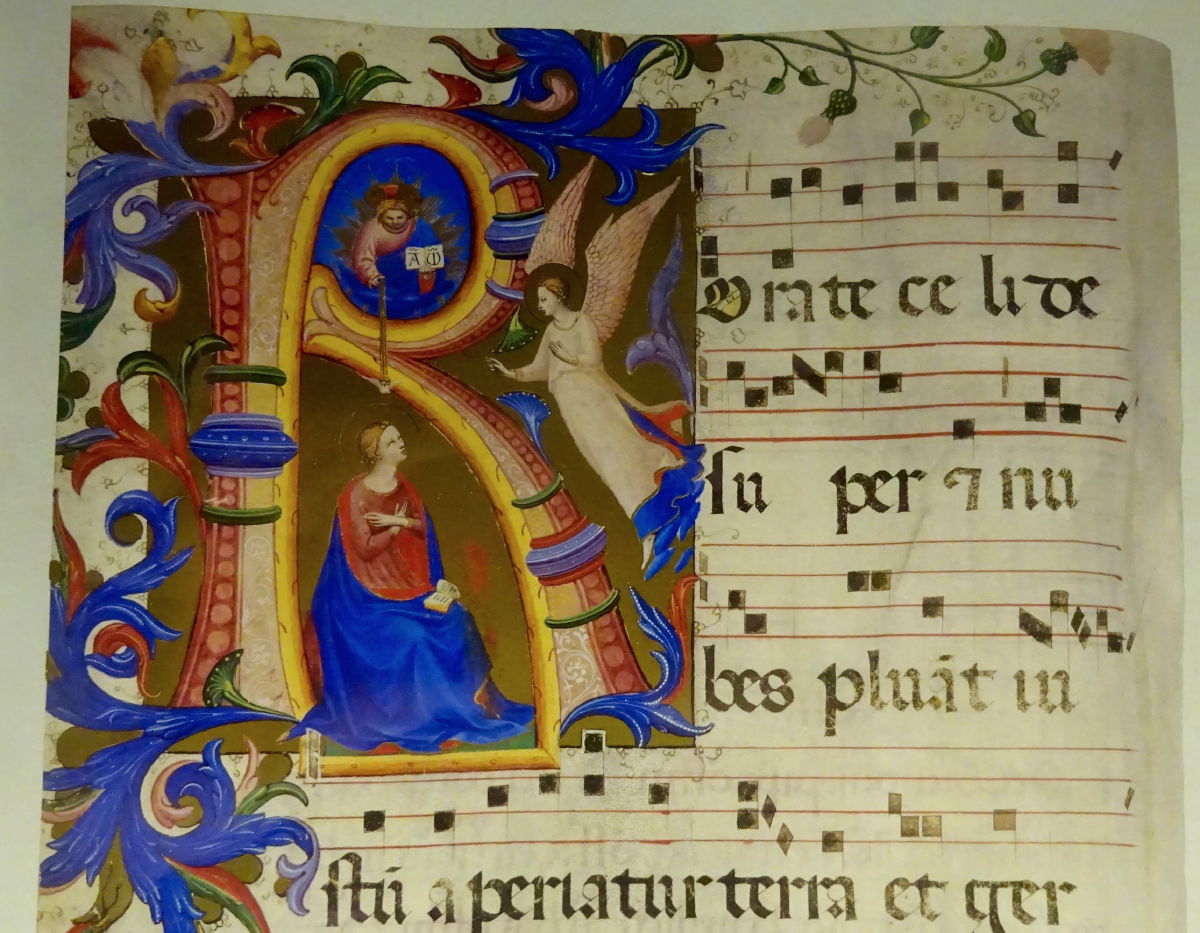 A Ω
ROrate ce li de
ſu per ⁊ nu
bes pluāt iu
ſtū a periatur terra et ger